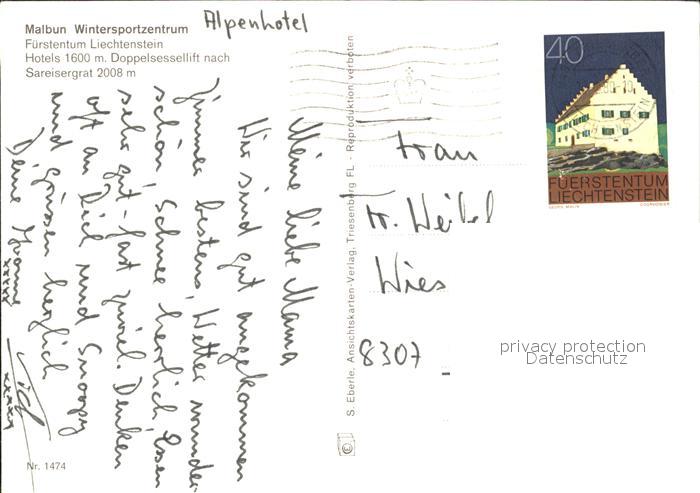 Malbun Wintersportzentrum
Fürstentum Liechtenstein
Hotels 1600 m. Doppelsessellift nach
Sareisergrat 2008 m
Alpenhotel
Meine liebe Mama
Wir sind gut angekommen
Zimmer bestens, Wetter wunder
schön Schnee herrlich Essen
sehr gut - fast zuviel. Denken
oft an Dich und Snoopy
und grüssen herzlich
Deine Yvonne
xxxxx
xxxxx
Nr. 1474
S. Eberle, Ansichtskarten-Verlag, Triesenberg FL. - Reproduktion verboten
40
FUERSTENTUM
LIECHTENSTEIN
GEORG MALIN COURVOISIER
Frau
H. Weibel
Wies
8307
privacy protection
Datenschutz